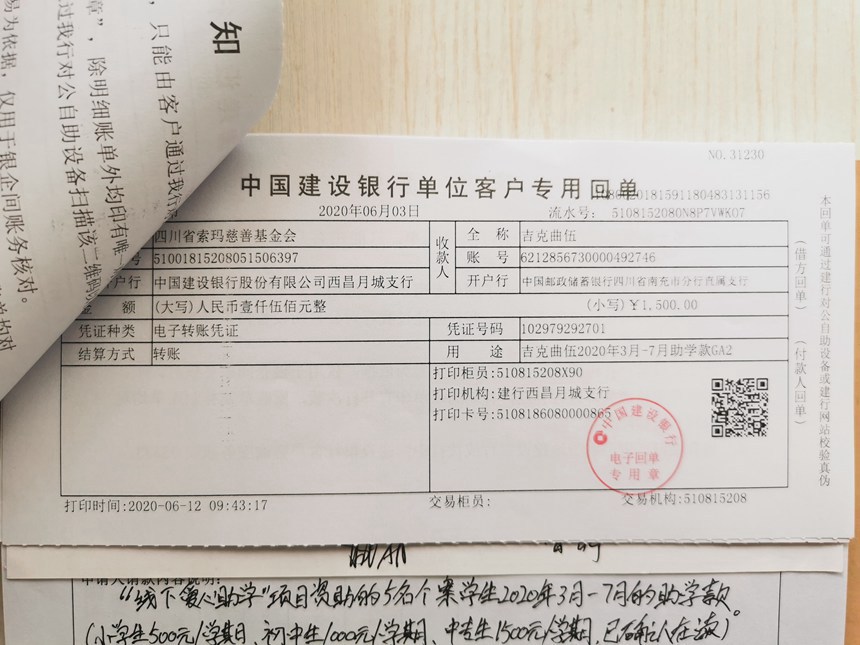 知
，只能由客户通过我行
章”，除明细账单外均印有唯一
过我行对公自助设备扫描该二维码
易为依据，仅用于银企间账务核对。
NO.31230
中国建设银行单位客户专用回单
2020年06月03日
流水号： 5108152080N8P7VWK07
四川省索玛慈善基金会
收款人
全 称
吉克曲伍
号
51001815208051506397
账 号
6212856730000492746
开户行
中国建设银行股份有限公司西昌月城支行
开户行
中国邮政储蓄银行四川省南充市分行直属支行
金 额
(大写)人民币壹仟伍佰元整
(小写)￥1,500.00
凭证种类
电子转账凭证
凭证号码
102979292701
结算方式
转账
用 途
吉克曲伍2020年3月-7月助学款GA2
打印柜员:510815208X90
打印机构:建行西昌月城支行
打印卡号:5108186080000865
中国建设银行
电子回单
专用章
打印时间:2020-06-12 09:43:17
交易柜员:
交易机构:510815208
(借方回单)
(付款人回单)
本回单可通过建行对公自助设备或建行网站校验真伪
申请人请款内容说明:
“线下爱心助学”项目资助的5名个案学生2020年3月-7月的助学款。
(小学生500元/学期、初中生1000元/学期、中专生1500元/学期,已确认人在读)